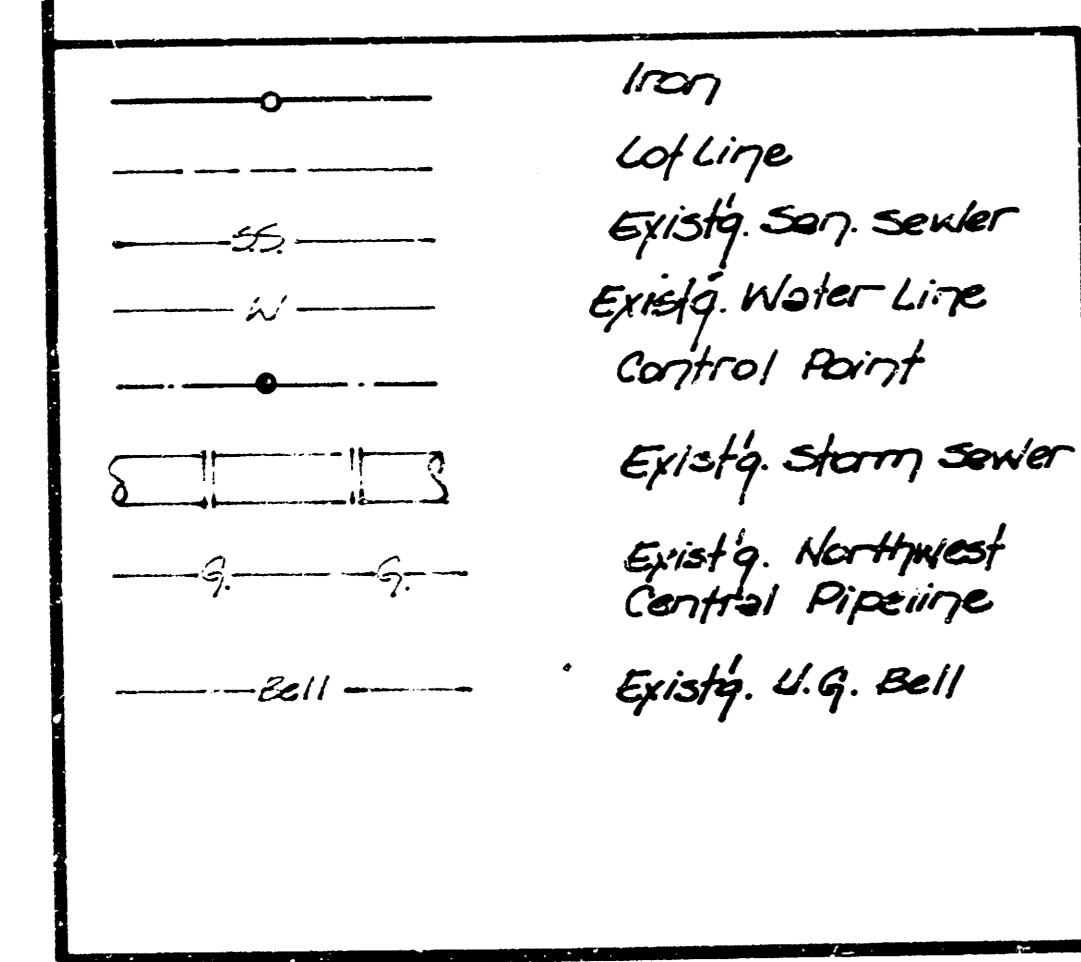 Iron
Lot Line
S.S. Exist'g. San. Sewer
W Exist'g. Water Line
Control Point
Exist'g. Storm Sewer
G. G. Exist'g. Northwest
Central Pipeline
Bell Exist'g. U.G. Bell